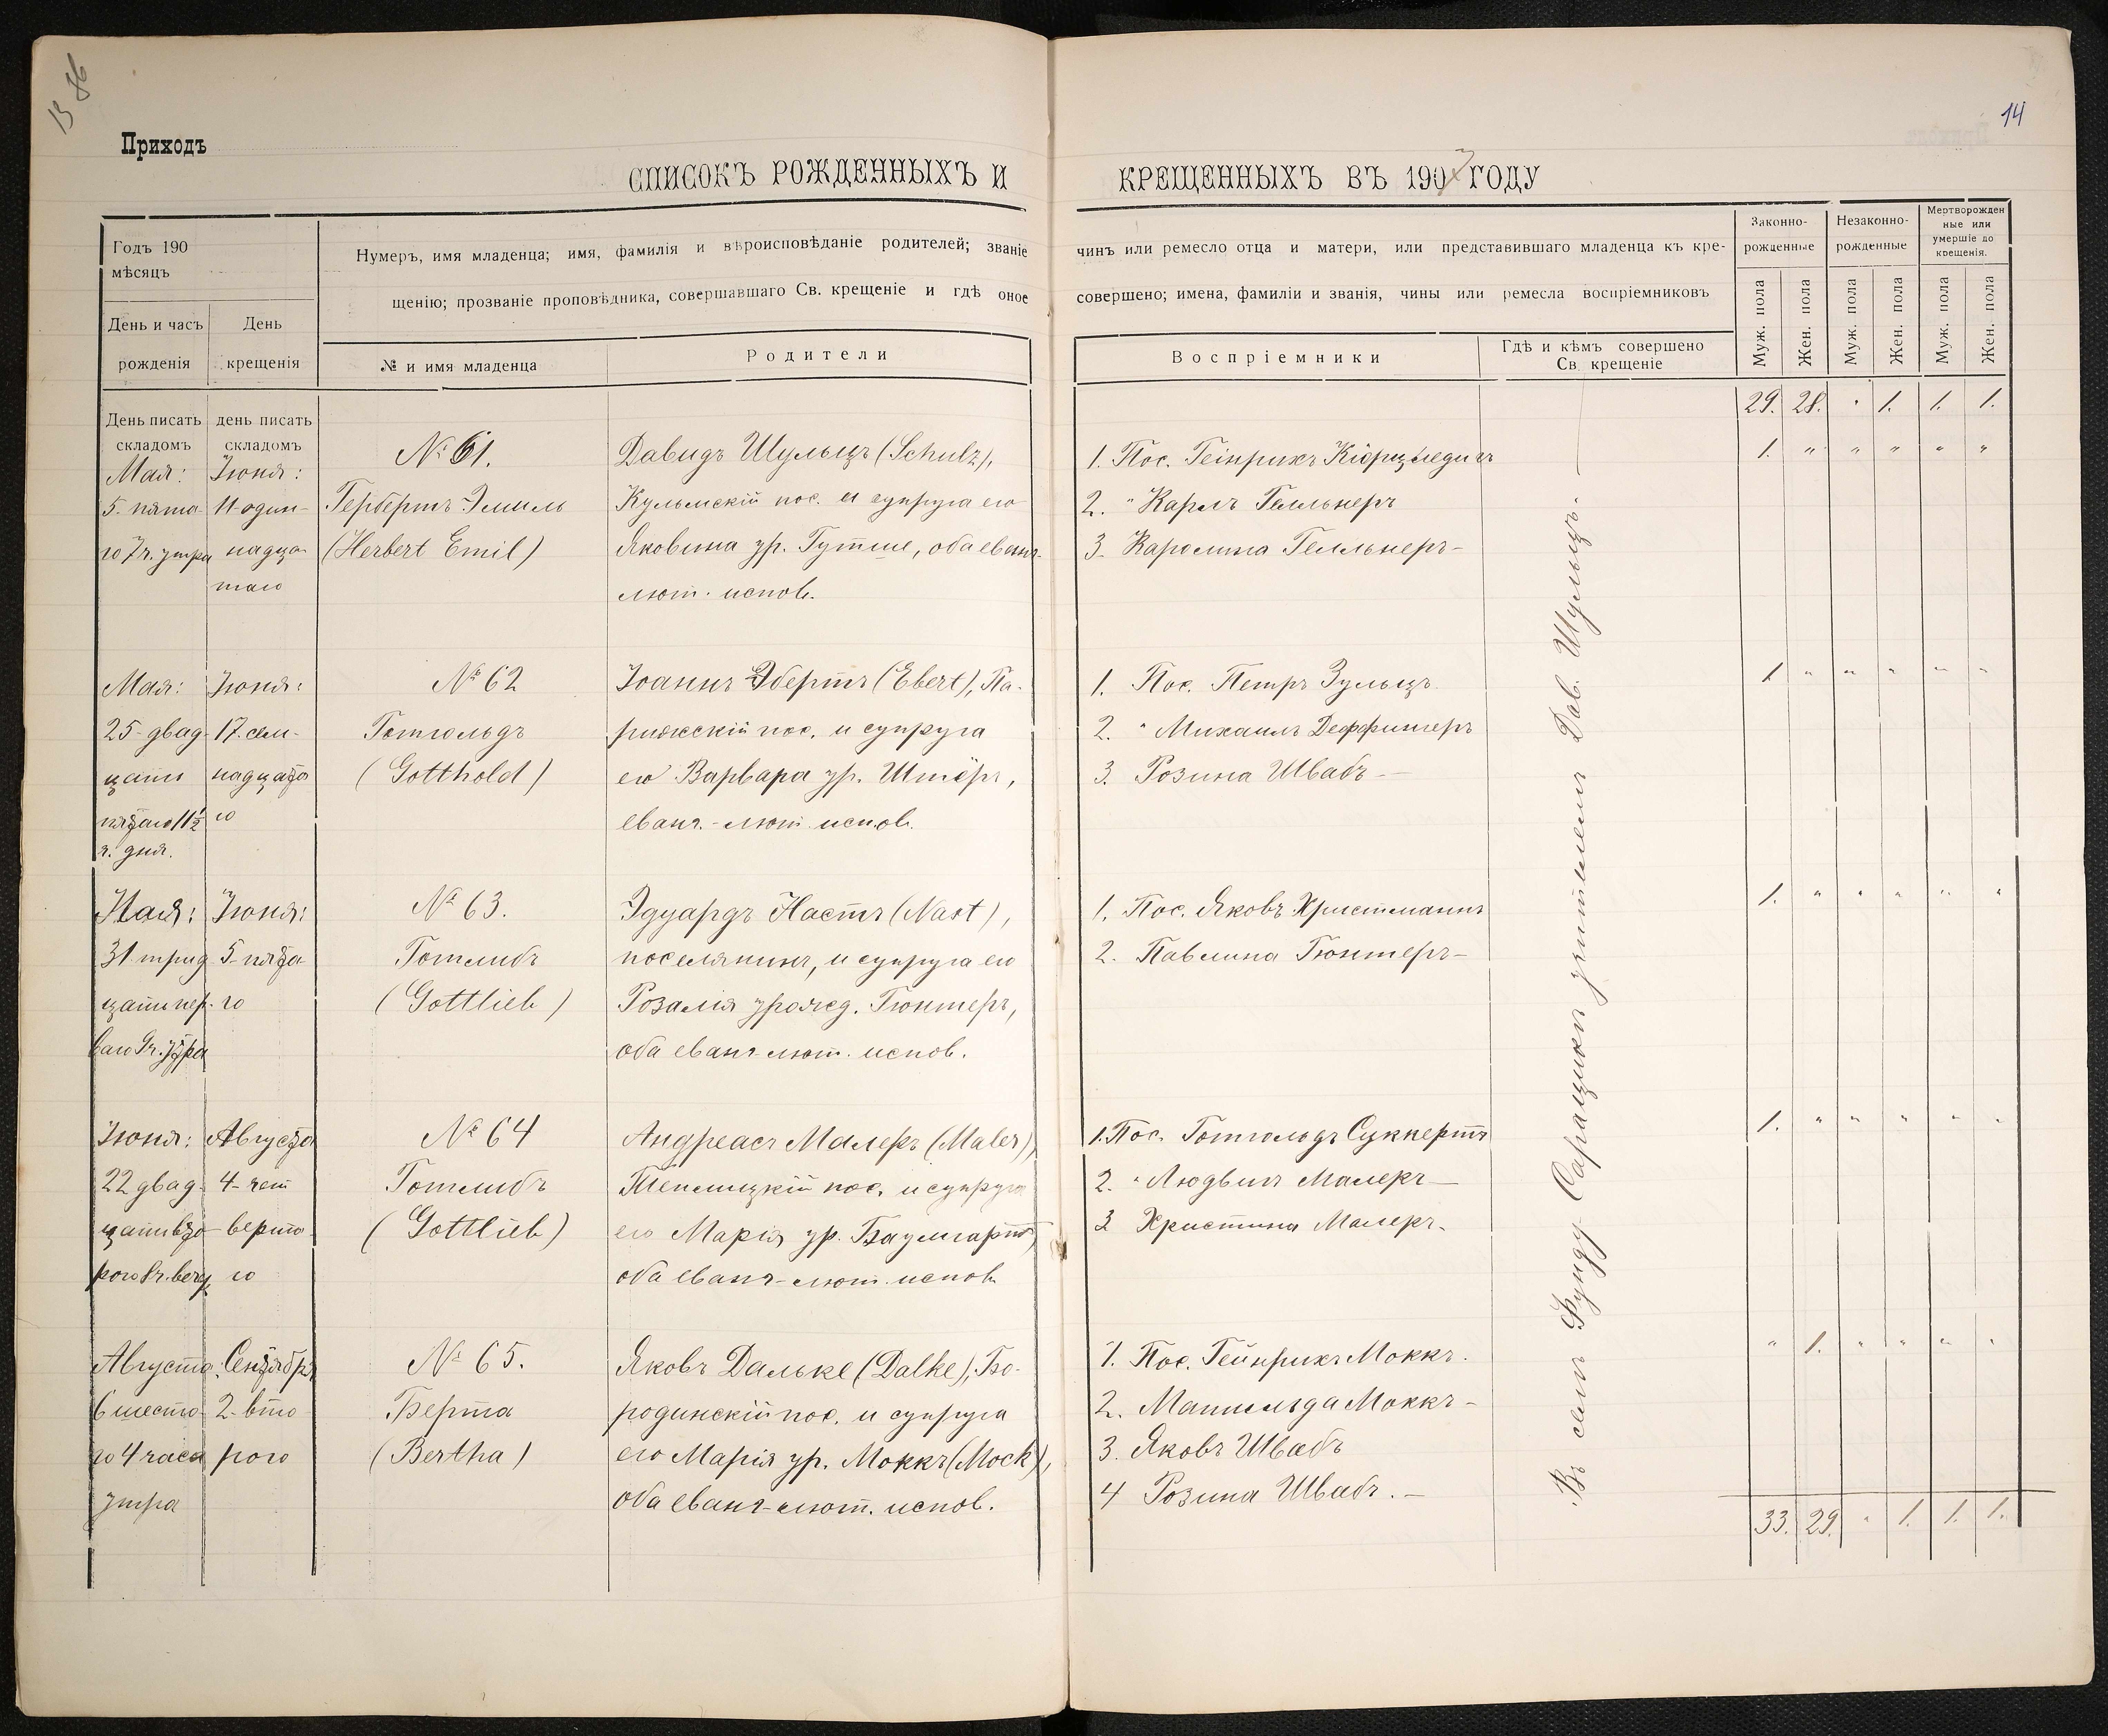 13 86
14
Приходъ
СПИСОКЪ РОЖДЕННЫХЪ И КРЕЩЕННЫХЪ ВЪ 1907 ГОДУ
Годъ 190
мѣсяцъ
День и часъ рожденія
День крещенія
Нумеръ, имя младенца; имя, фамилія и вѣроисповѣданіе родителей; званіе чинъ или ремесло отца и матери, или представившаго младенца къ кре-
щенію; прозваніе проповѣдника, совершавшаго Св. крещеніе и гдѣ оное совершено; имена, фамиліи и званія, чины или ремесла воспріемниковъ
№ и имя младенца
Родители
Воспріемники
Гдѣ и кѣмъ совершено
Св. крещеніе
Законно-
рожденные
Незаконно-
рожденные
Мертворожден
ные или
умершіе до
крещенія.
Муж. пола
Жен. пола
Муж. пола
Жен. пола
Муж. пола
Жен. пола
День писать
складомъ
день писать
складомъ
29. 28. " 1. 1. 1.
Мая:
5. пята-
го 7ч. утра
Іюня:
11-один-
надца-
таго
№ 61.
Гербертъ Эмиль
(Herbert Emil)
Давидъ Шульцъ (Schulz),
Кульмскій пос. и супруга его
Яковина ур. Гутше, оба еванг.-
лют. испов.
1. Пос. Гейнрихъ
2. " Карлъ Гелльнеръ
3. Каролина Гелльнеръ-
1. " " " " "
Мая:
25-двад-
цать
пятаго 11½
ч. дня.
Іюня:
17. сем-
надцата
го
№ 62
Готгольдъ
(Gotthold)
Іоаннъ Эбертъ (Ebert), Па-
рижскій пос. и супруга
его Варвара ур. Штёръ,
еванг.-лют. испов.
1. Пос. Петръ Зульцъ
2. " Михаилъ Деффингеръ
3. Розина Швабъ-
1 " " " " "
Мая:
31 трид-
цать пер-
ваго 9ч. утра
Іюня:
5-пята-
го
№ 63.
Готлибъ
(Gottlieb)
Эдуардъ Настъ (Nast),
поселянинъ, и супруга его
Розалія урожд. Гюнтеръ,
оба еванг-лют. испов.
1. Пос. Яковъ Христманнъ
2. Павлина Гюнтеръ-
1. " " " " "
Іюня:
22 двад-
цать вто-
рого 8ч. веч.
Августа
4-чет
верта
го
№ 64
Готлибъ
(Gottlieb)
Андреасъ Малеръ (Maler),
Теплицкій пос. и супруга
его Марія ур. Баумгартъ,
оба еванг-лют. испов.
1. Пос. Готгольдъ Суккертъ
2. " Людвигъ Малеръ-
3 Христина Малеръ-
1. " " " " "
Августа:
6 шесто-
го 4 часа
утра
Сентября
2-вто-
рого
№ 65.
Берта
(Bertha)
Яковъ Дальке (Dalke), Бо-
родинскій пос. и супруга
его Марія ур. Моккъ (Mock),
оба еванг-лют. испов.
1. Пос. Гейнрихъ Моккъ.
2. Матильда Моккъ-
3. Яковъ Швабъ
4 Розина Швабъ.-
" 1. " " " "
Въ сел. Фунду Сарацики учителемъ Дав. Шульцъ.
33. 29. " 1. 1. 1.